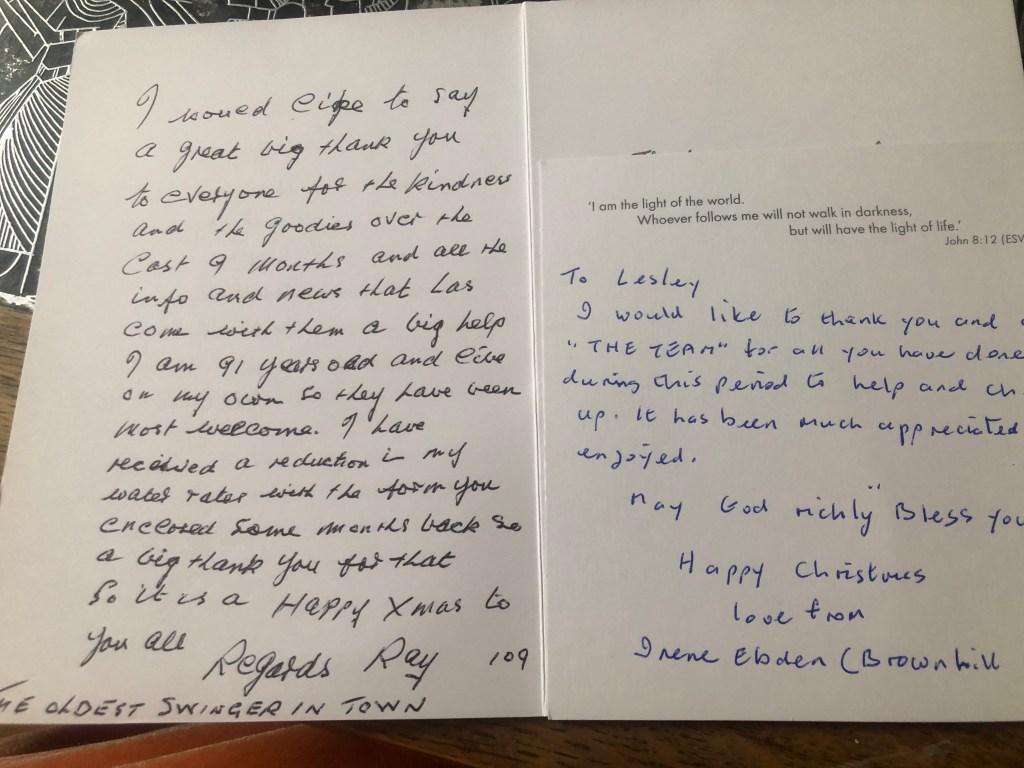 I would like to say
a great big thank you
to everyone for the kindness
and the goodies over the
last 9 months and all the
info and news that has
come with them a big help
I am 91 years old and live
on my own so they have been
most wellcome. I have
received a reduction in my
water rates with the form you
enclosed some months back so
a big thank you for that
So it is a Happy Xmas to
you all
Regards Ray 109
THE OLDEST SWINGER IN TOWN
'I am the light of the world.
Whoever follows me will not walk in darkness,
but will have the light of life.'
John 8:12 (ESV
To Lesley
I would like to thank you and
"THE TEAM" for all you have done
during this period to help and ch
up. It has been much appreciated
enjoyed.
May God richly" Bless you
Happy Christmas
love from
Irene Ebden (Brownhill